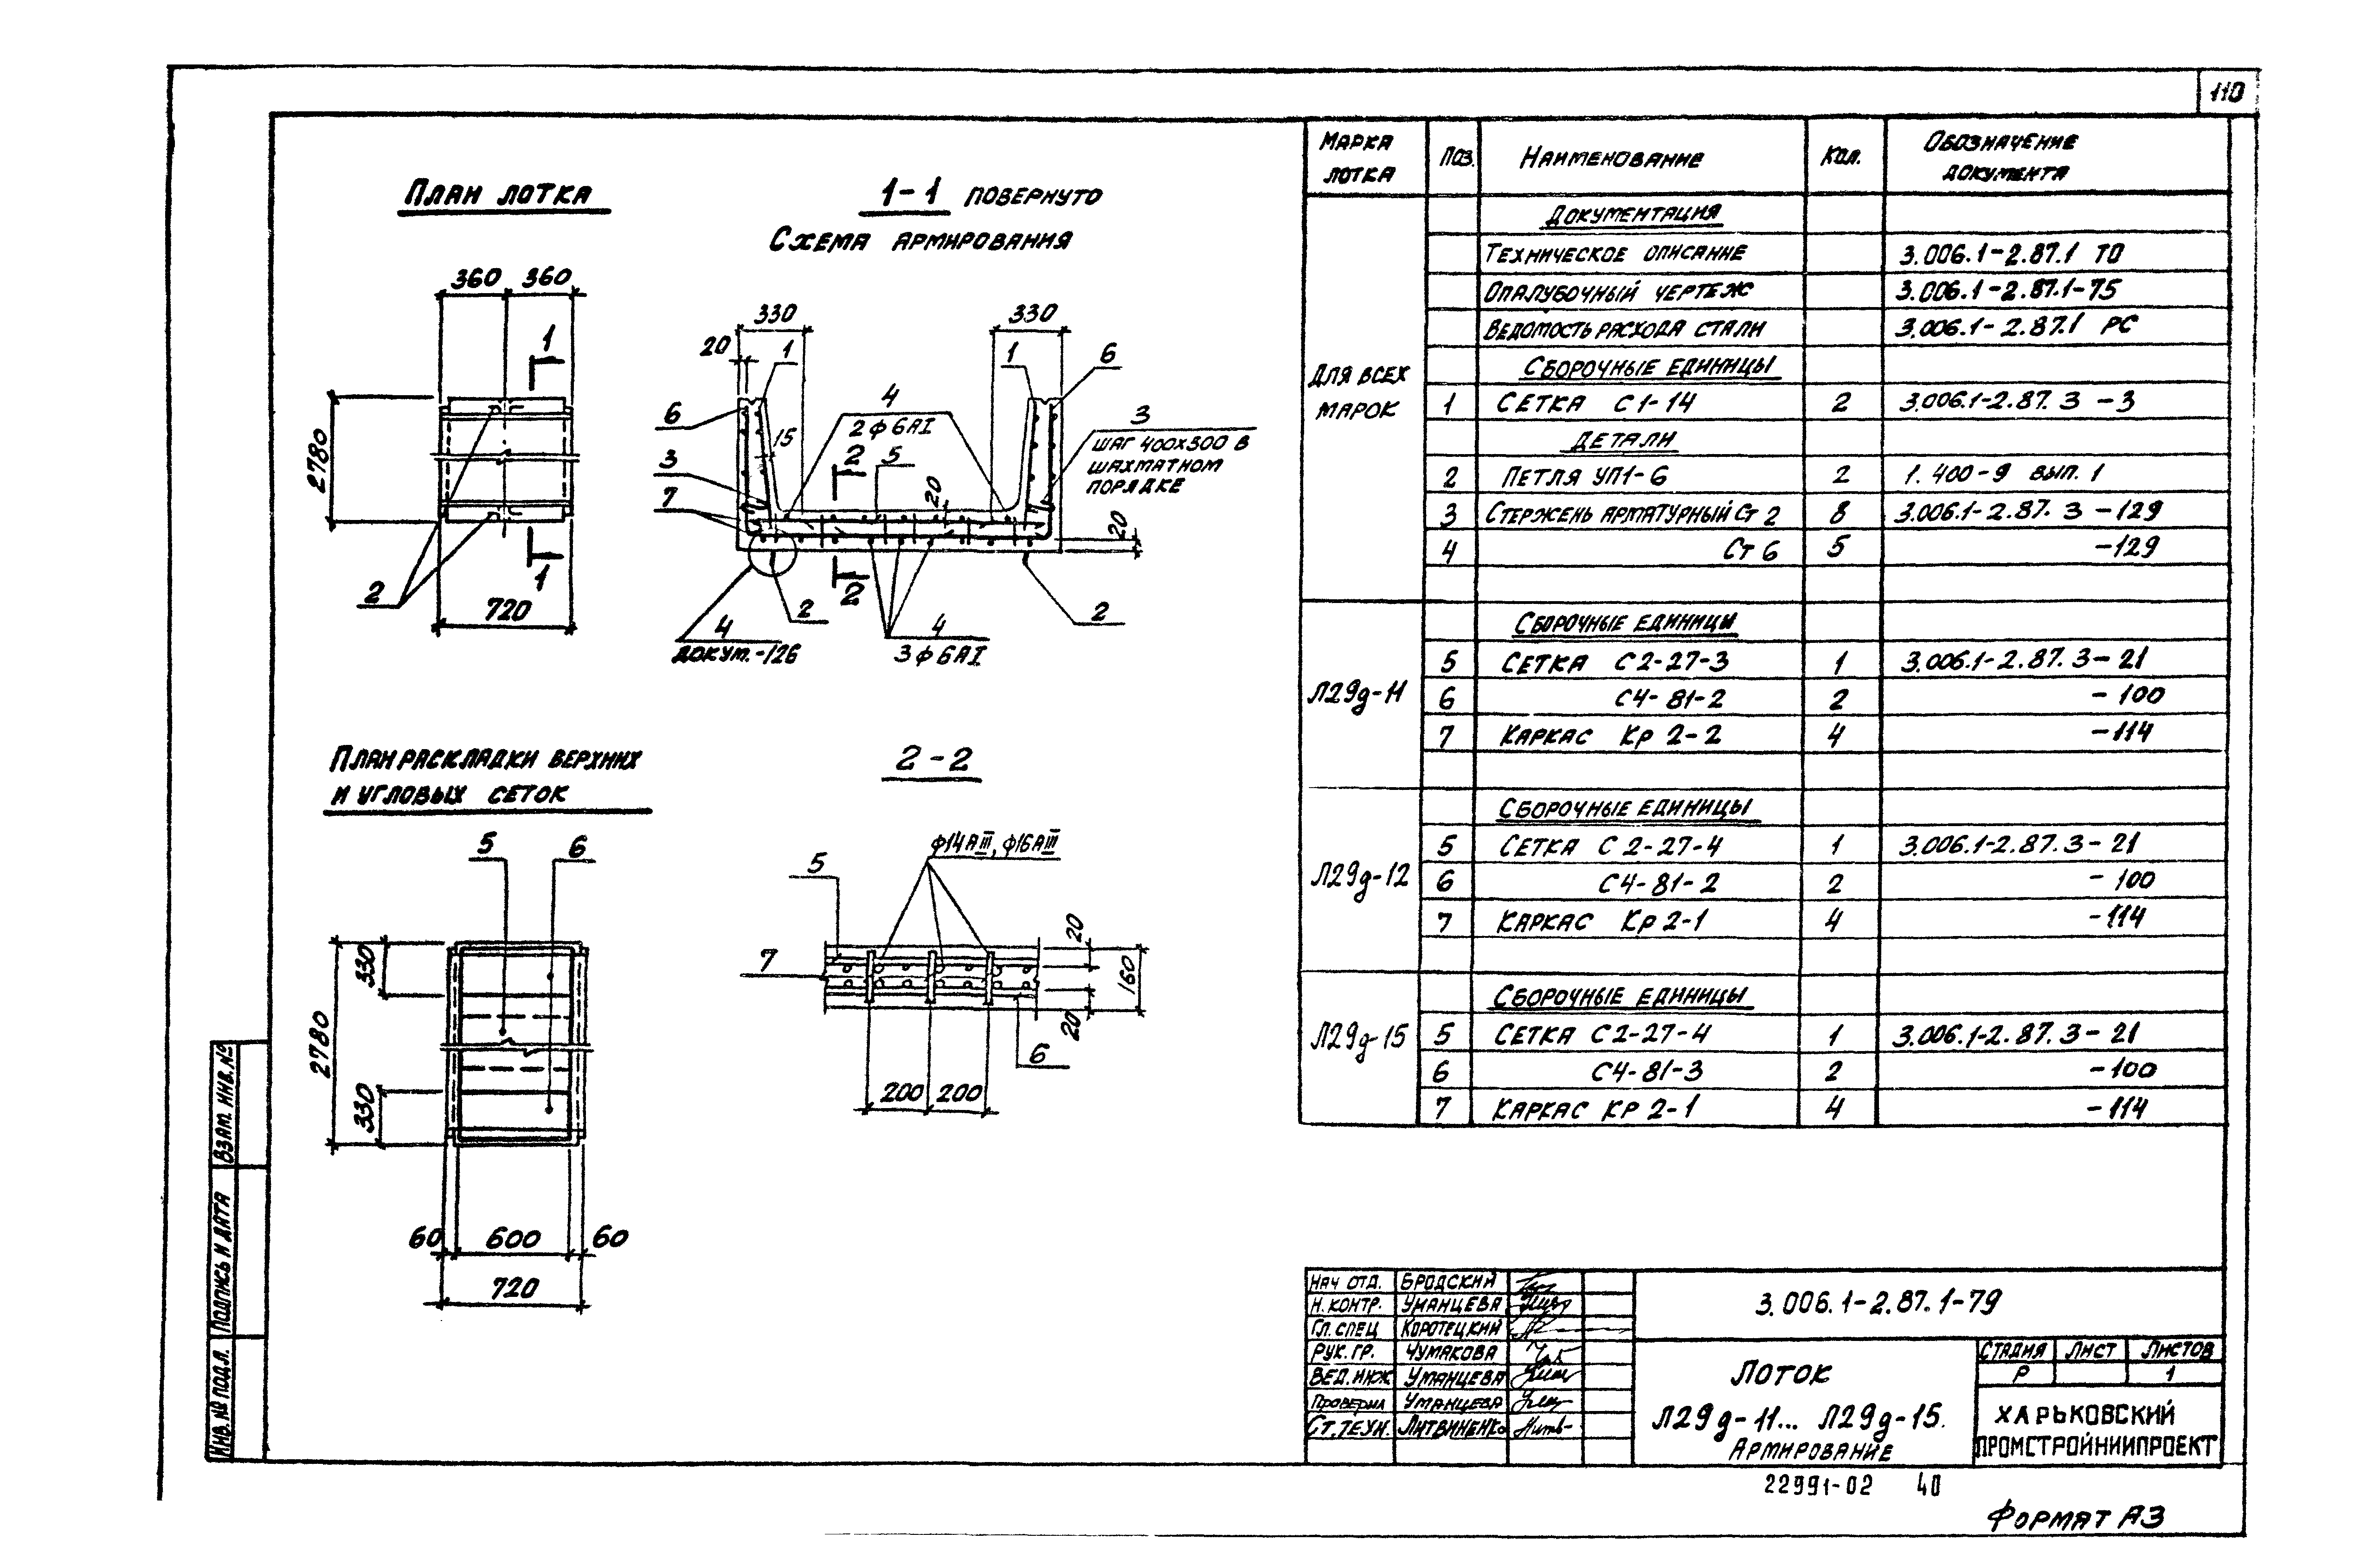 110
План лотка
360 360
1
2780
2
1
720
1-1 повернуто
Схема армирования
330 330
20 1 1 6
4
6 2ф6АI 3
15 шаг 400х300 в
шахматном
порядке
3 2 5
7 20
20
2 2 2
4 4
докум.-126 3ф6АI
План раскладки верхних
и угловых сеток
5 6
330
2780
330
60 600 60
720
2-2
ф14АIII, ф16АIII
5
7
20
160
20
6
200 200
Марка лотка Поз. Наименование Кол. Обозначение документа
Для всех марок
Документация
Техническое описание 3.006.1-2.87.1 ТО
Опалубочный чертеж 3.006.1-2.87.1-75
Ведомость расхода стали 3.006.1-2.87.1 РС
Сборочные единицы
1 Сетка С1-14 2 3.006.1-2.87.3-3
Детали
2 Петля УП1-6 2 1.400-9 вып.1
3 Стержень арматурный Ст 2 8 3.006.1-2.87.3-129
4 Ст 6 5 -129
Л29д-11
Сборочные единицы
5 Сетка С2-27-3 1 3.006.1-2.87.3-21
6 С4-81-2 2 -100
7 Каркас Кр 2-2 4 -114
Л29д-12
Сборочные единицы
5 Сетка С2-27-4 1 3.006.1-2.87.3-21
6 С4-81-2 2 -100
7 Каркас Кр 2-1 4 -114
Л29д-15
Сборочные единицы
5 Сетка С2-27-4 1 3.006.1-2.87.3-21
6 С4-81-3 2 -100
7 Каркас Кр 2-1 4 -114
Нач отд. Бродский
Н. контр. Уманцева
Гл. спец Коротецкий
Рук. гр. Чумакова
Вед. инж Уманцева
Проверил Уманцева
Ст. техн. Литвиненко
3.006.1-2.87.1-79
Лоток
Л29д-11... Л29д-15.
Армирование
Стадия Лист Листов
Р 1
Харьковский
Промстройниипроект
22991-02 40
Формат А3
Взам. инв. №
Подпись и дата
Инв. № подл.